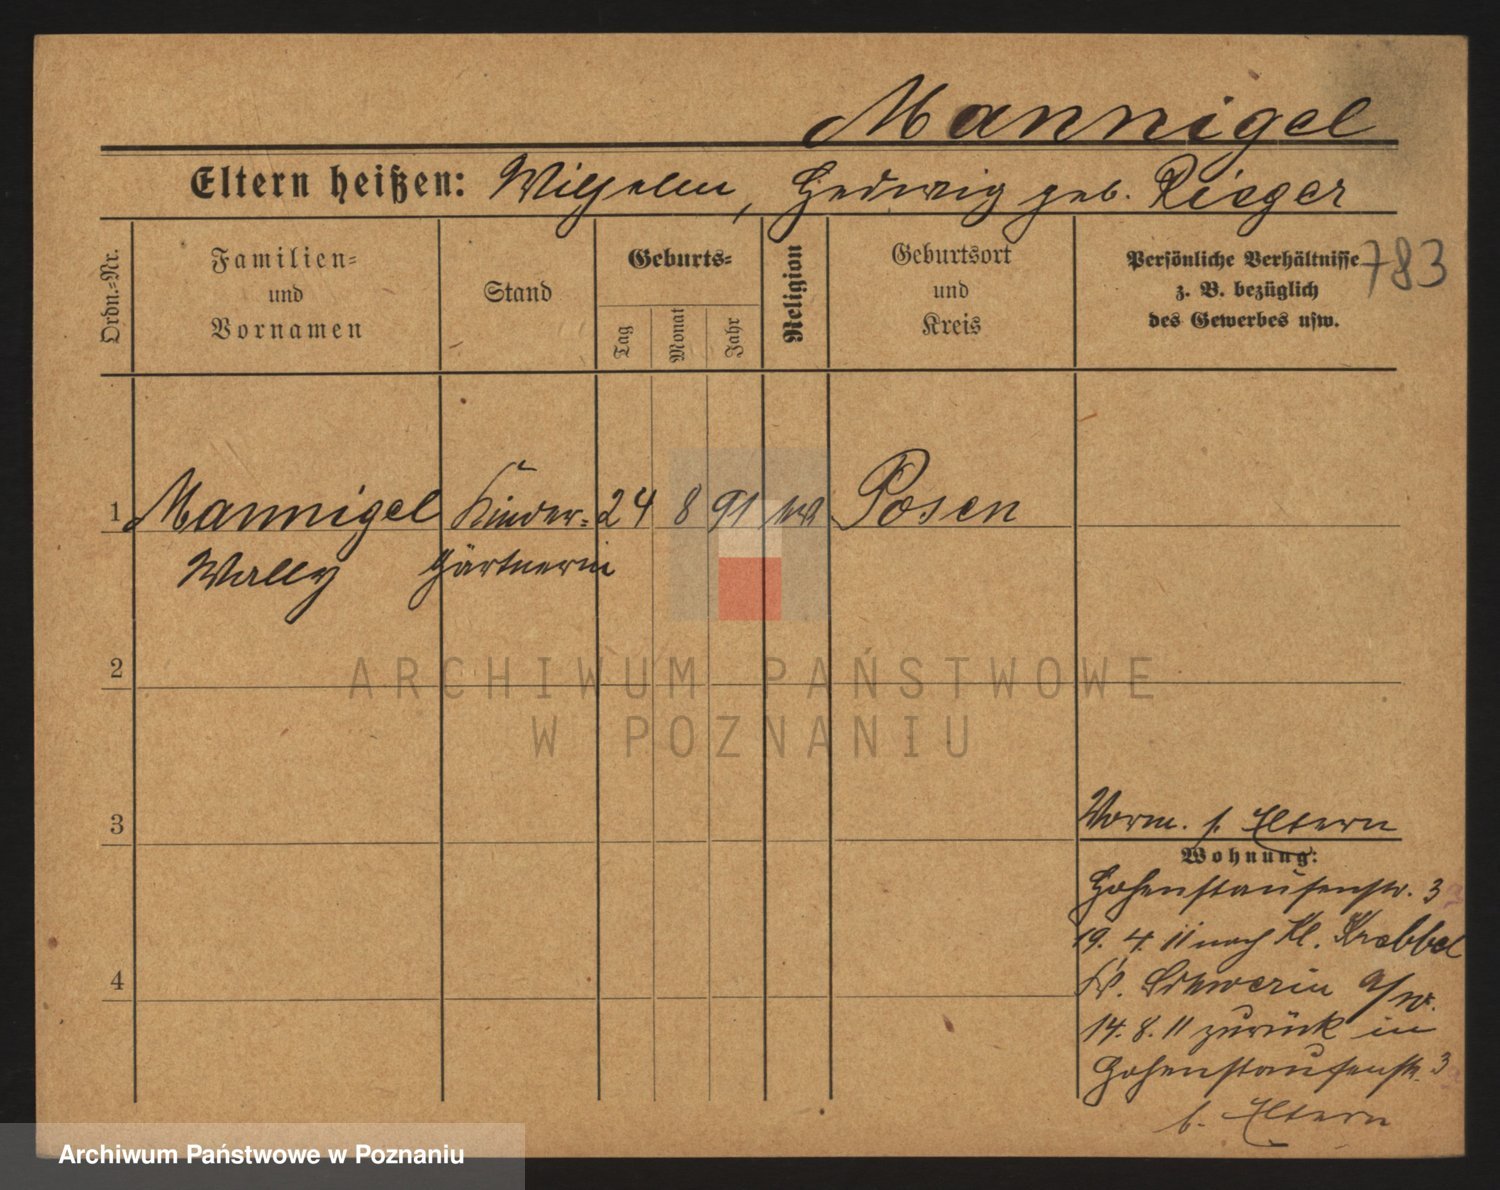 Mannigel
Eltern heißen: Wilhelm, Hedwig geb. Rieger
Ordn.-Nr.
Familien-
und
Vornamen
Stand
Geburts-
Tag
Monat
Jahr
Religion
Geburtsort
und
Kreis
Persönliche Verhältnisse
z. B. bezüglich
des Gewerbes usw.
783
1 Mannigel Kinder- 24 8 91 Posen
Wally gärtnerin
2
3
4
Vorm. s. Eltern
Wohnung:
Hohenstaufenstr. 3
19. 4. 11 nach Kl. Krebbel
Kr. Schwerin a/W.
14. 8. 11 zurück in
Hohenstaufenstr. 3
b. Eltern
ARCHIWUM PAŃSTWOWE
W POZNANIU
Archiwum Państwowe w Poznaniu